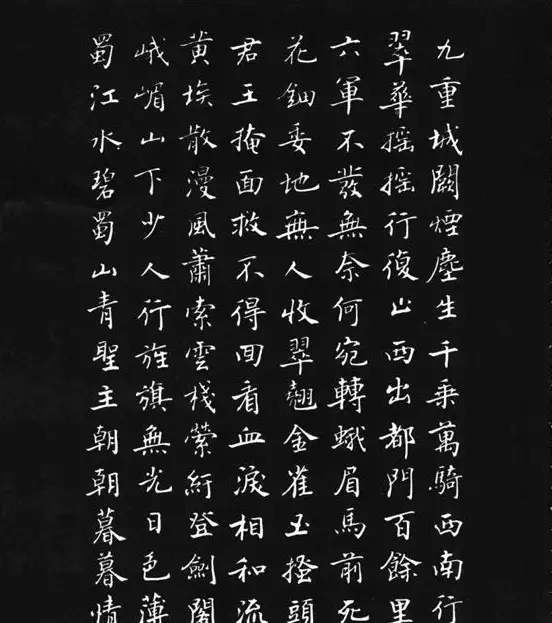 九重城闕煙塵生千乗萬騎西南行
翠華摇摇行復止西出都門百餘里
六軍不發無奈何宛轉蛾眉馬前死
花鈿委地無人收翠翹金雀玉搔頭
君王掩面救不得回看血淚相和流
黄埃散漫風蕭索雲棧縈紆登劍閣
峨嵋山下少人行旌旗無光日色薄
蜀江水碧蜀山青聖主朝朝暮暮情